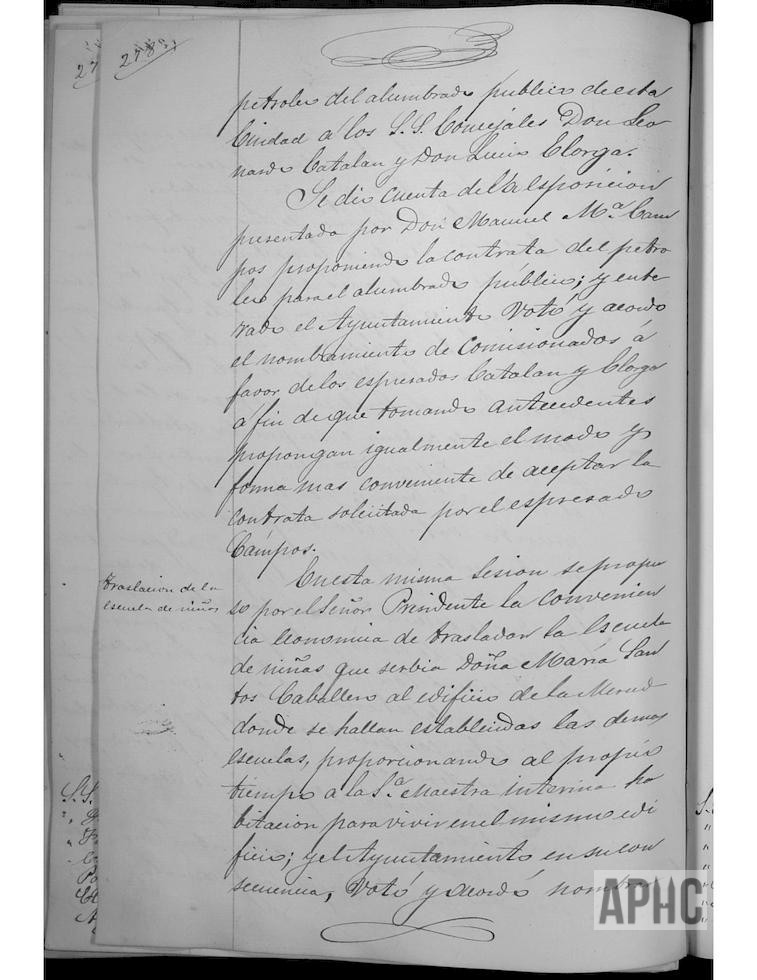 278
petroleo del alumbrado publico de esta
Ciudad a los S.S. Concejales Don Leo
nardo Catalan y Don Luis Clorga.
Se dio cuenta de la esposicion
presentada por Don Manuel Mª. Cam
pos proponiendo la contrata del petro
leo para el alumbrado publico; y ente
rado el Ayuntamiento Votó y acordo
el nombramiento de Comisionados á
favor de los espresados Catalan y Clorga
á fin de que tomando antecedentes
propongan igualmente el modo y
forma mas conveniente de aceptar la
contrata solicitada por el espresado
Campos.
traslacion de la
escuela de niñas
En esta misma Sesion se propu
so por el Señor Presidente la convenien
cia economica de trasladar la Escuela
de niñas que serbia Doña María San
tos Caballero al edificio de la Merced
donde se hallan establecidas las demas
escuelas, proporcionando al propio
tiempo a la Sª. Maestra interina ha
bitacion para vivir en el mismo edi
ficio; y el Ayuntamiento en su con
secuencia, Votó y acordó nombrar
APHC